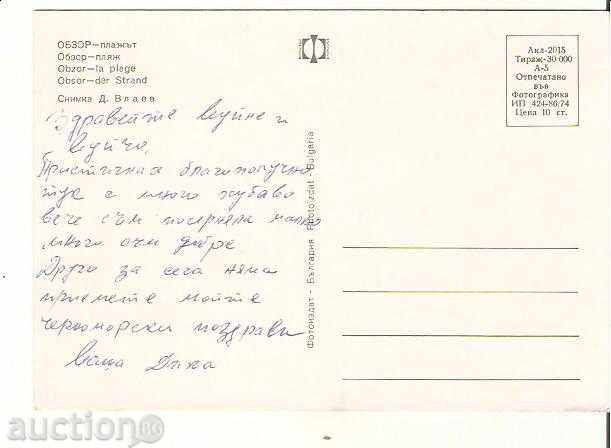 ОБЗОР—плажът
Обзор—пляж
Obzor—la plage
Obsor—der Strand
Снимка Д. Влаев
Здравейте вуйне и
вуйчо,
Пристигнах благополучно
тук е много хубаво
вече съм почерняла малко
много съм добре
Друго за сега няма
приемете моите
черноморски поздрави
Ваша
Фотоиздат - България Photoizdat - Bulgaria
Акл-2015
Тираж-30 000
А-5
Отпечатано
във
Фотографика
ИП 424-86/74
Цена 10 ст.
auction.bg